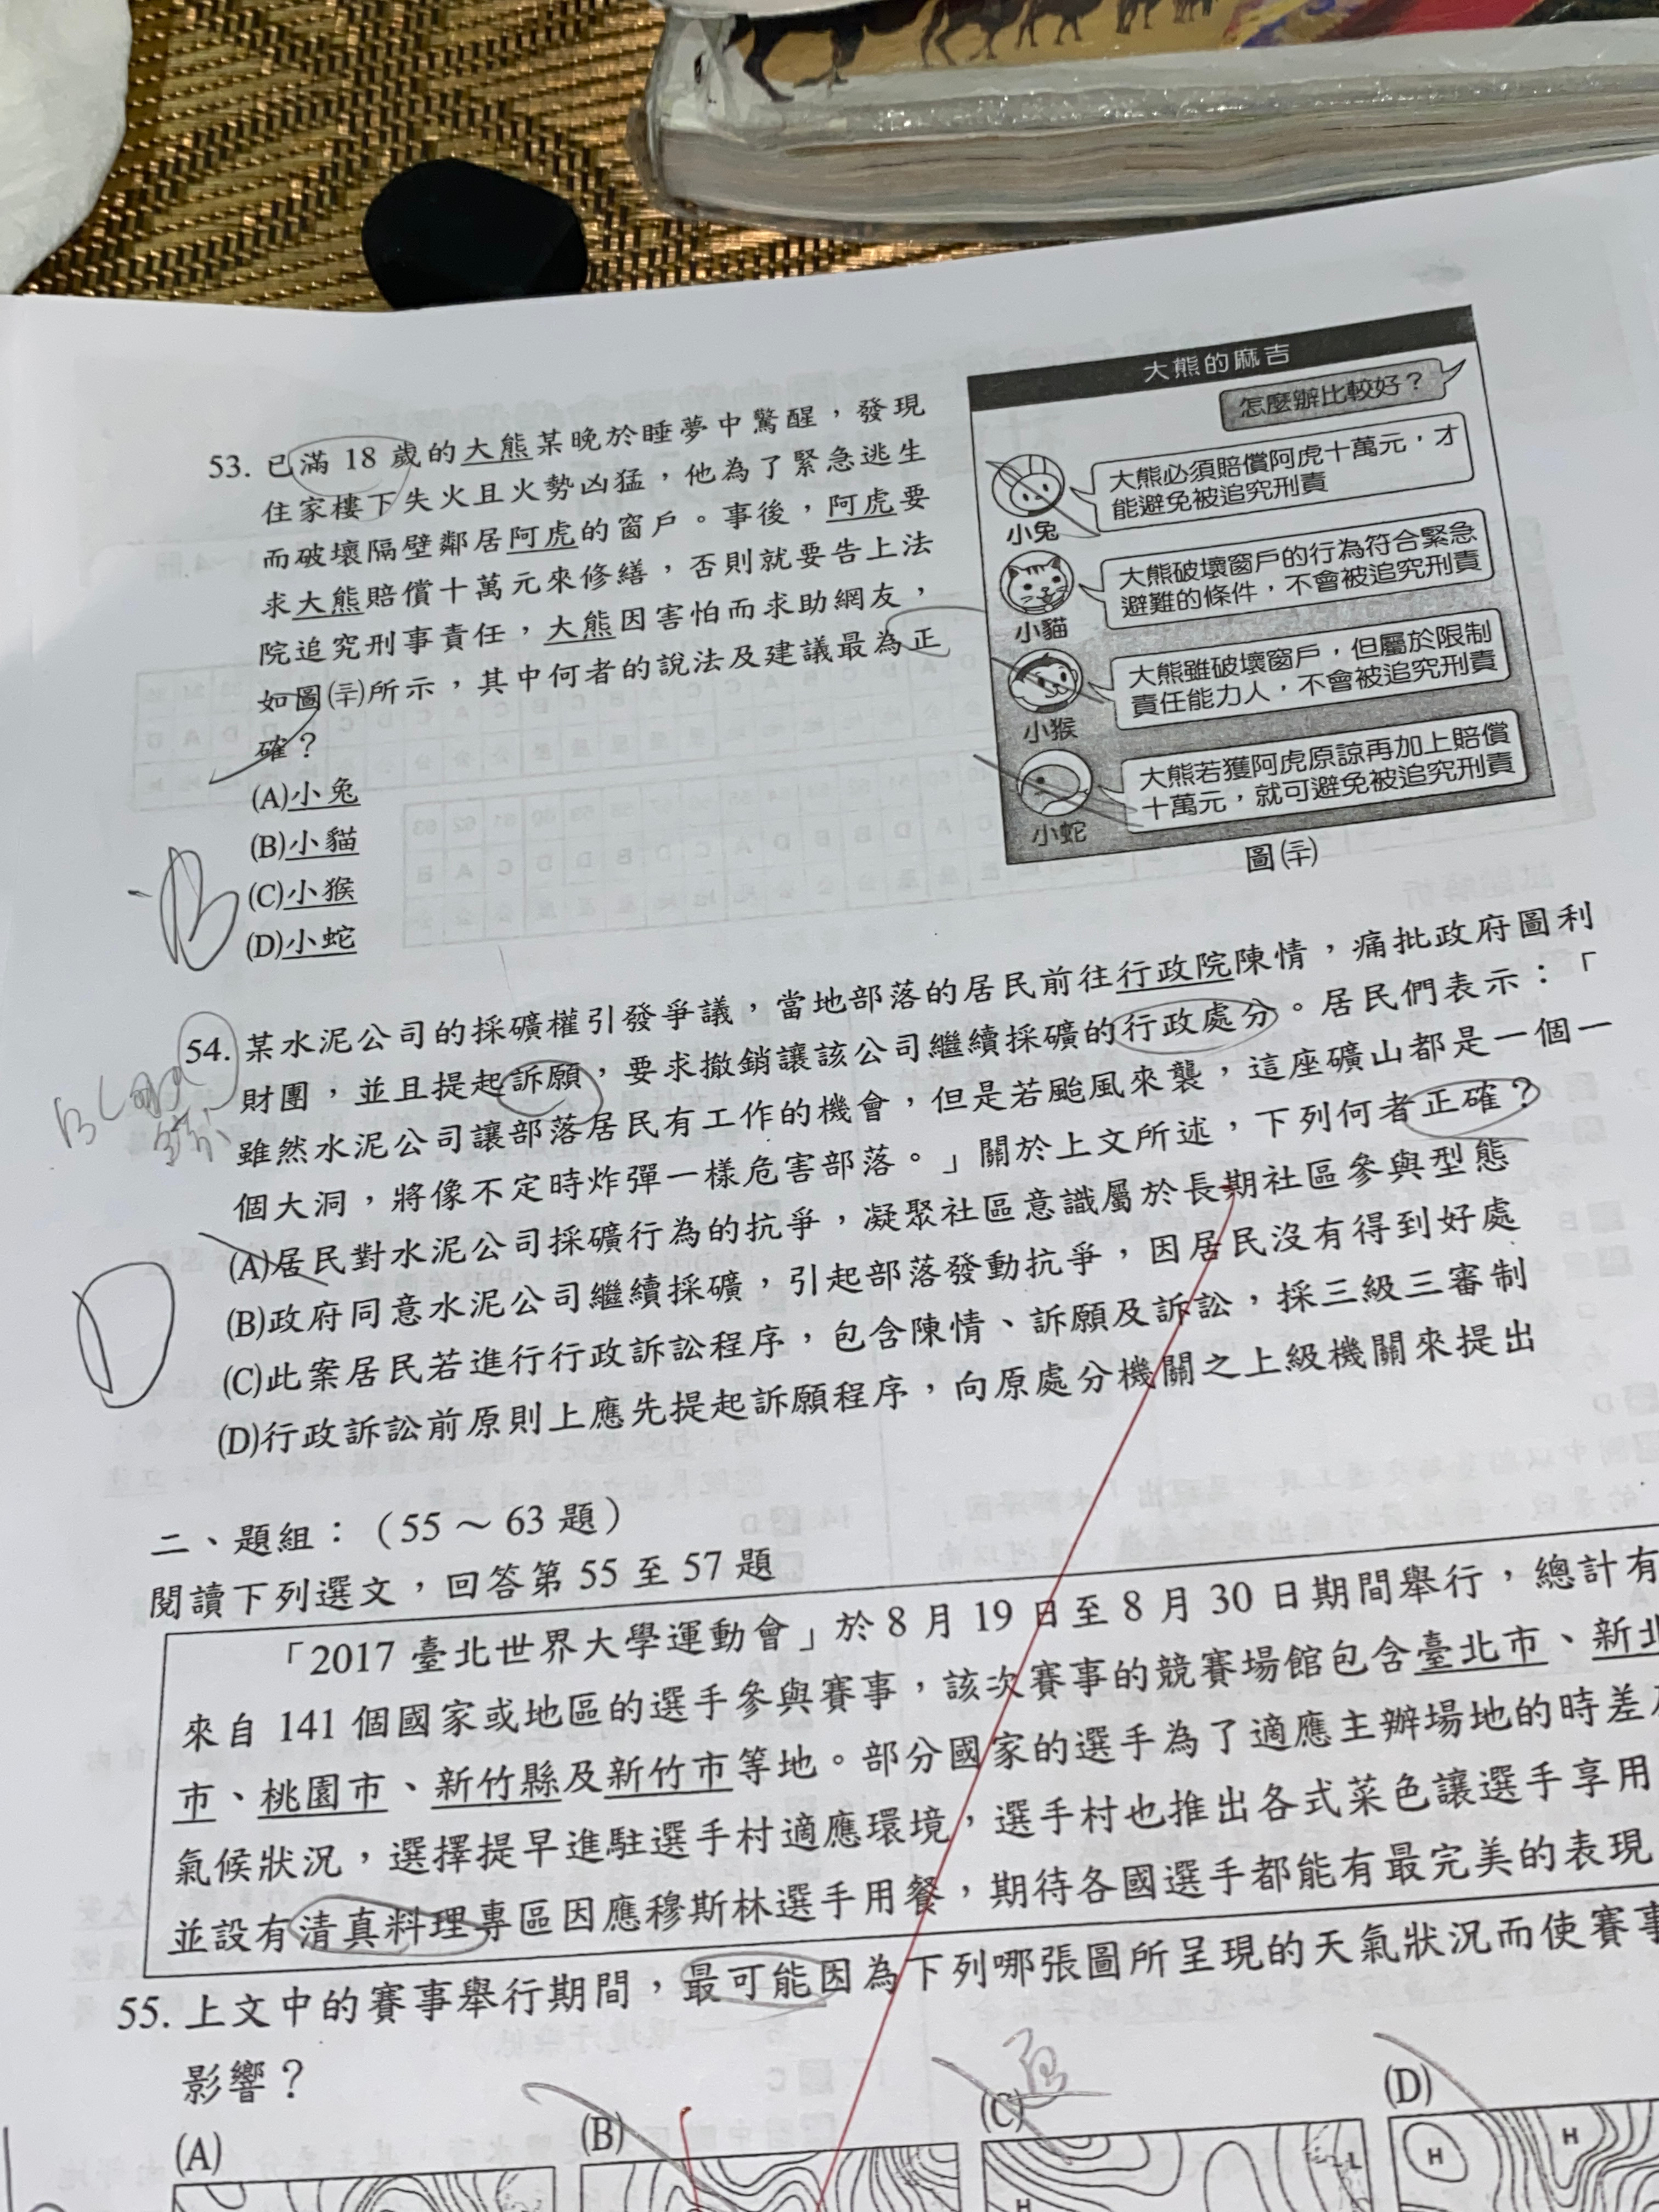 53. 已滿 18 歲的大熊某晚於睡夢中驚醒，發現
住家樓下失火且火勢凶猛，他為了緊急逃生
而破壞隔壁鄰居阿虎的窗戶。事後，阿虎要
求大熊賠償十萬元來修繕，否則就要告上法
院追究刑事責任，大熊因害怕而求助網友，
如圖(三十)所示，其中何者的說法及建議最為正
確？
(A)小兔
(B)小貓
(C)小猴
(D)小蛇
B
大熊的麻吉
怎麼辦比較好？
大熊必須賠償阿虎十萬元，才
能避免被追究刑責
小兔
大熊破壞窗戶的行為符合緊急
避難的條件，不會被追究刑責
小貓
大熊雖破壞窗戶，但屬於限制
責任能力人，不會被追究刑責
小猴
大熊若獲阿虎原諒再加上賠償
十萬元，就可避免被追究刑責
小蛇
圖(三十)
54. 某水泥公司的採礦權引發爭議，當地部落的居民前往行政院陳情，痛批政府圖利
財團，並且提起訴願，要求撤銷讓該公司繼續採礦的行政處分。居民們表示：「
雖然水泥公司讓部落居民有工作的機會，但是若颱風來襲，這座礦山都是一個一
個大洞，將像不定時炸彈一樣危害部落。」關於上文所述，下列何者正確？
(A)居民對水泥公司採礦行為的抗爭，凝聚社區意識屬於長期社區參與型態
(B)政府同意水泥公司繼續採礦，引起部落發動抗爭，因居民沒有得到好處
(C)此案居民若進行行政訴訟程序，包含陳情、訴願及訴訟，採三級三審制
(D)行政訴訟前原則上應先提起訴願程序，向原處分機關之上級機關來提出
D
二、題組：（55～63 題）
閱讀下列選文，回答第 55 至 57 題
「2017 臺北世界大學運動會」於 8 月 19 日至 8 月 30 日期間舉行，總計有
來自 141 個國家或地區的選手參與賽事，該次賽事的競賽場館包含臺北市、新北
市、桃園市、新竹縣及新竹市等地。部分國家的選手為了適應主辦場地的時差及
氣候狀況，選擇提早進駐選手村適應環境，選手村也推出各式菜色讓選手享用
並設有清真料理專區因應穆斯林選手用餐，期待各國選手都能有最完美的表現
55. 上文中的賽事舉行期間，最可能因為下列哪張圖所呈現的天氣狀況而使賽事
影響？
(A)
(B)
(C)
(D)
H
L
H
H